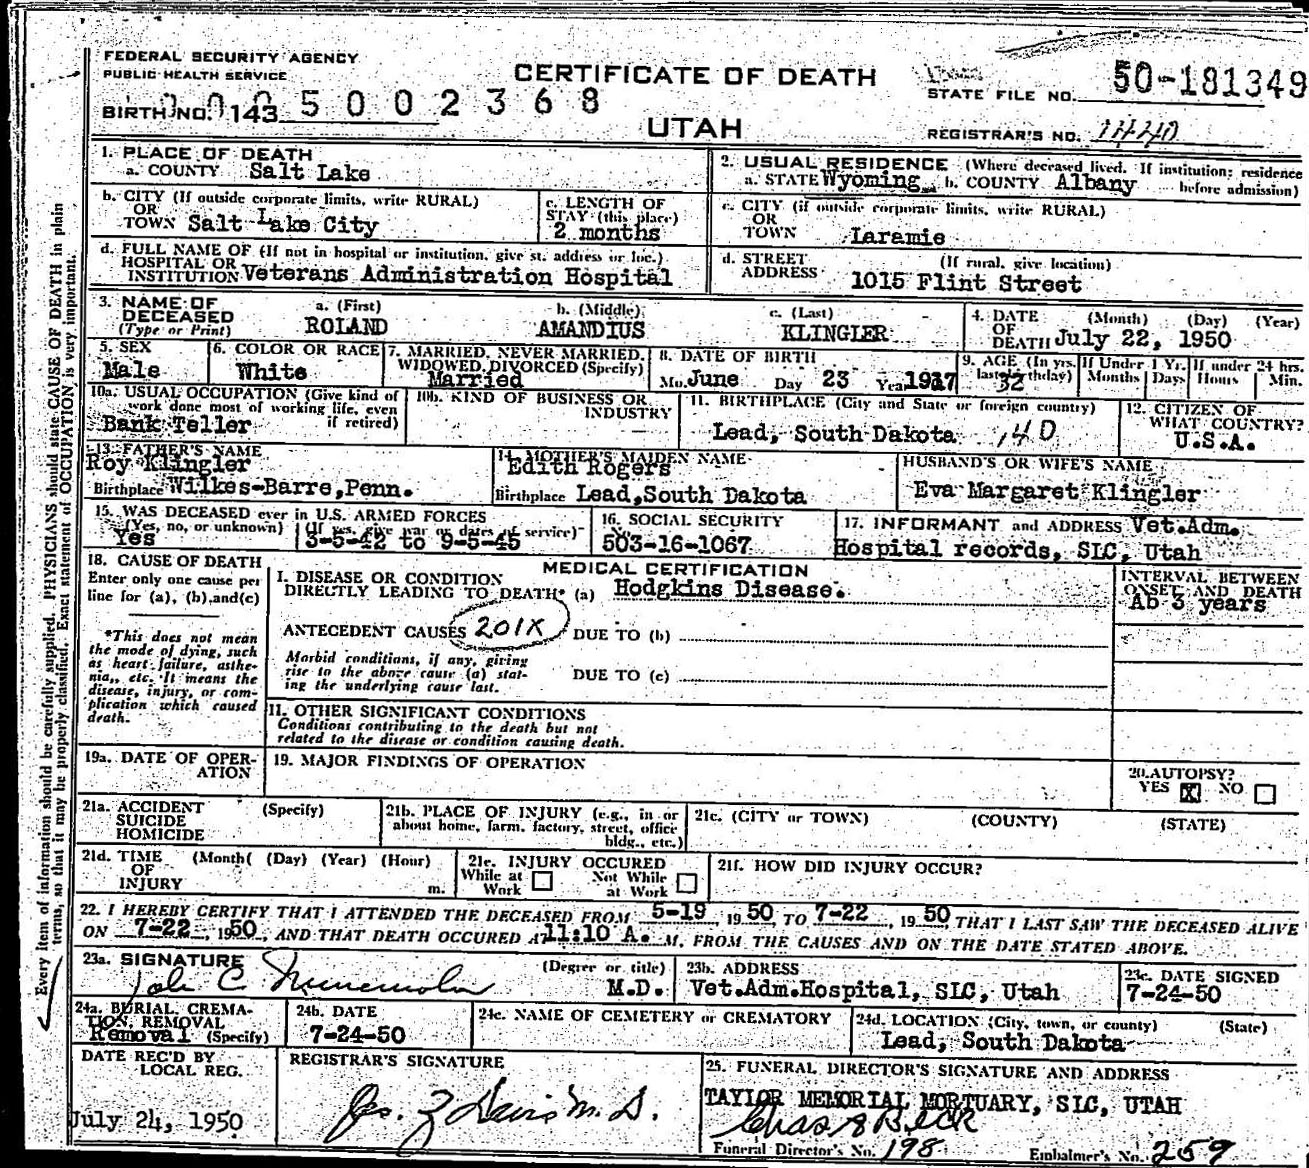 FEDERAL SECURITY AGENCY
PUBLIC HEALTH SERVICE
CERTIFICATE OF DEATH
UTAH
STATE FILE NO. 50-181349
BIRTH NO. 143 5002368
REGISTRAR'S NO. 1440
1. PLACE OF DEATH
a. COUNTY Salt Lake
b. CITY (If outside corporate limits, write RURAL)
OR
TOWN Salt Lake City
c. LENGTH OF
STAY (this place)
2 months
d. FULL NAME OF (If not in hospital or institution, give st. address or loc.)
HOSPITAL OR
INSTITUTION Veterans Administration Hospital
2. USUAL RESIDENCE (Where deceased lived. If institution: residence
a. STATE Wyoming b. COUNTY Albany before admission)
c. CITY (if outside corporate limits, write RURAL)
OR
TOWN Laramie
d. STREET (If rural, give location)
ADDRESS 1015 Flint Street
3. NAME OF
DECEASED
(Type or Print)
a. (First)
ROLAND
b. (Middle)
AMANDIUS
c. (Last)
KLINGLER
4. DATE (Month) (Day) (Year)
OF
DEATH July 22, 1950
5. SEX
Male
6. COLOR OR RACE
White
7. MARRIED, NEVER MARRIED,
WIDOWED, DIVORCED (Specify)
Married
8. DATE OF BIRTH
Mo. June Day 23 Year 1917
9. AGE (In yrs. last birthday)
32
If Under 1 Yr.
Months Days
If under 24 hrs.
Hours Min.
10a. USUAL OCCUPATION (Give kind of
work done most of working life, even
if retired)
Bank Teller
10b. KIND OF BUSINESS OR
INDUSTRY
11. BIRTHPLACE (City and State or foreign country)
Lead, South Dakota 140
12. CITIZEN OF
WHAT COUNTRY?
U.S.A.
13. FATHER'S NAME
Roy Klingler
Birthplace Wilkes-Barre, Penn.
14. MOTHER'S MAIDEN NAME
Edith Rogers
Birthplace Lead, South Dakota
HUSBAND'S OR WIFE'S NAME
Eva Margaret Klingler
15. WAS DECEASED ever in U.S. ARMED FORCES
(Yes, no, or unknown) (If yes, give war or dates of service)
Yes 3-5-42 to 9-5-45
16. SOCIAL SECURITY
503-16-1067
17. INFORMANT and ADDRESS Vet.Adm.
Hospital records, SLC, Utah
18. CAUSE OF DEATH
Enter only one cause per
line for (a), (b), and (c)
*This does not mean
the mode of dying, such
as heart failure, asthe-
nia, etc. It means the
disease, injury, or com-
plication which caused
death.
MEDICAL CERTIFICATION
I. DISEASE OR CONDITION
DIRECTLY LEADING TO DEATH* (a) Hodgkins Disease.
ANTECEDENT CAUSES 201X DUE TO (b)
Morbid conditions, if any, giving
rise to the above cause (a) stat-
ing the underlying cause last.
DUE TO (c)
11. OTHER SIGNIFICANT CONDITIONS
Conditions contributing to the death but not
related to the disease or condition causing death.
INTERVAL BETWEEN
ONSET AND DEATH
Ab 3 years
19a. DATE OF OPER-
ATION
19. MAJOR FINDINGS OF OPERATION
20. AUTOPSY?
YES X NO
21a. ACCIDENT (Specify)
SUICIDE
HOMICIDE
21b. PLACE OF INJURY (e.g., in or
about home, farm, factory, street, office
bldg., etc.)
21c. (CITY or TOWN) (COUNTY) (STATE)
21d. TIME (Month( (Day) (Year) (Hour)
OF
INJURY m.
21e. INJURY OCCURED
While at Work Not While at Work
21f. HOW DID INJURY OCCUR?
22. I HEREBY CERTIFY THAT I ATTENDED THE DECEASED FROM 5-19, 1950 TO 7-22, 1950 THAT I LAST SAW THE DECEASED ALIVE
ON 7-22, 1950, AND THAT DEATH OCCURED AT 11:10 A. M, FROM THE CAUSES AND ON THE DATE STATED ABOVE.
23a. SIGNATURE (Degree or title)
M.D.
23b. ADDRESS
Vet.Adm.Hospital, SLC, Utah
23c. DATE SIGNED
7-24-50
24a. BURIAL, CREMA-
TION, REMOVAL
Removal (Specify)
24b. DATE
7-24-50
24c. NAME OF CEMETERY or CREMATORY
24d. LOCATION (City, town, or county) (State)
Lead, South Dakota
DATE REC'D BY
LOCAL REG.
July 24, 1950
REGISTRAR'S SIGNATURE
25. FUNERAL DIRECTOR'S SIGNATURE AND ADDRESS
TAYLOR MEMORIAL MORTUARY, SLC, UTAH
Chas S Beck
Funeral Director's No. 198 Embalmer's No. 259
Every item of information should be carefully supplied. PHYSICIANS should state CAUSE OF DEATH in plain
terms, so that it may be properly classified. Exact statement of OCCUPATION is very important.